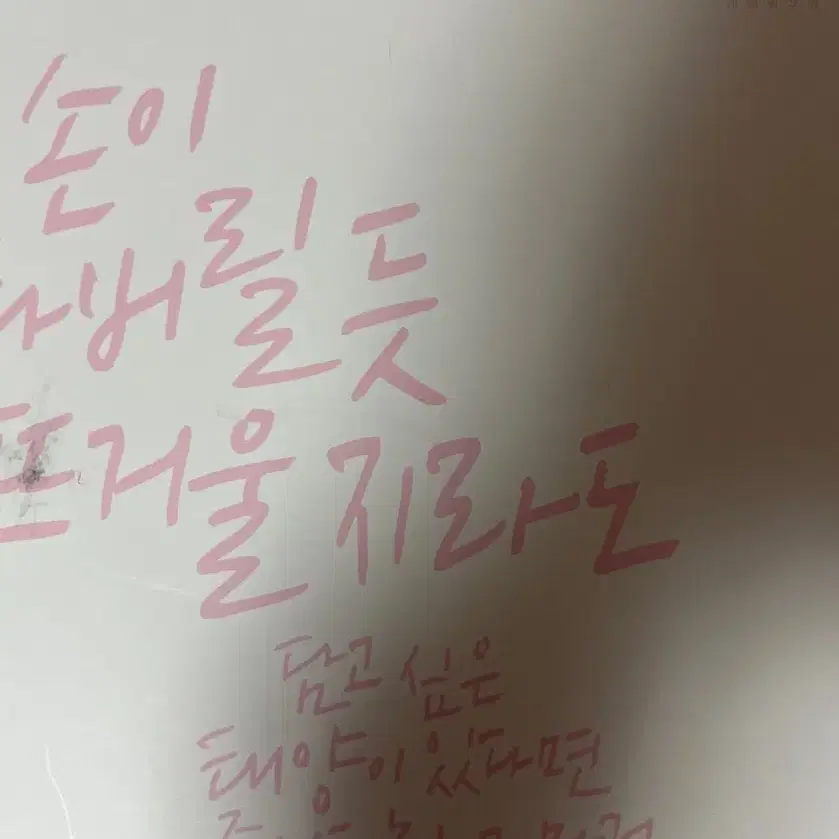 손이
타버릴 듯
뜨거울지라도
담고 싶은
태양이 있다면